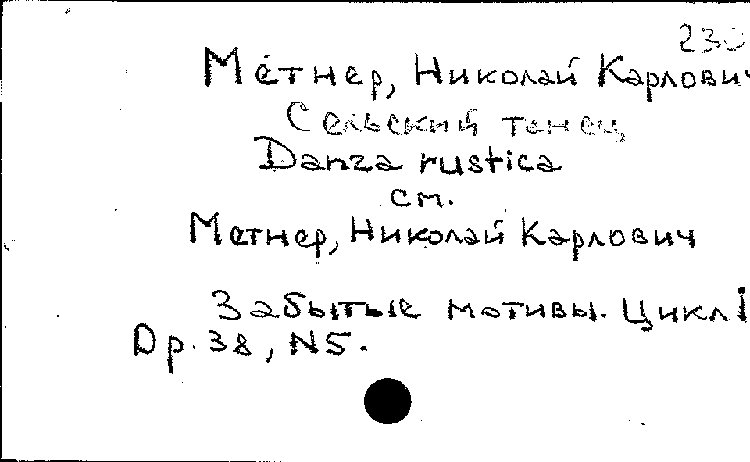 230
Метнер, Николай Карлович
Сельский танец
Danza rustica
см.
Метнер, Николай Карлович
Забытые мотивы. Цикл I
Op. 38, N5.